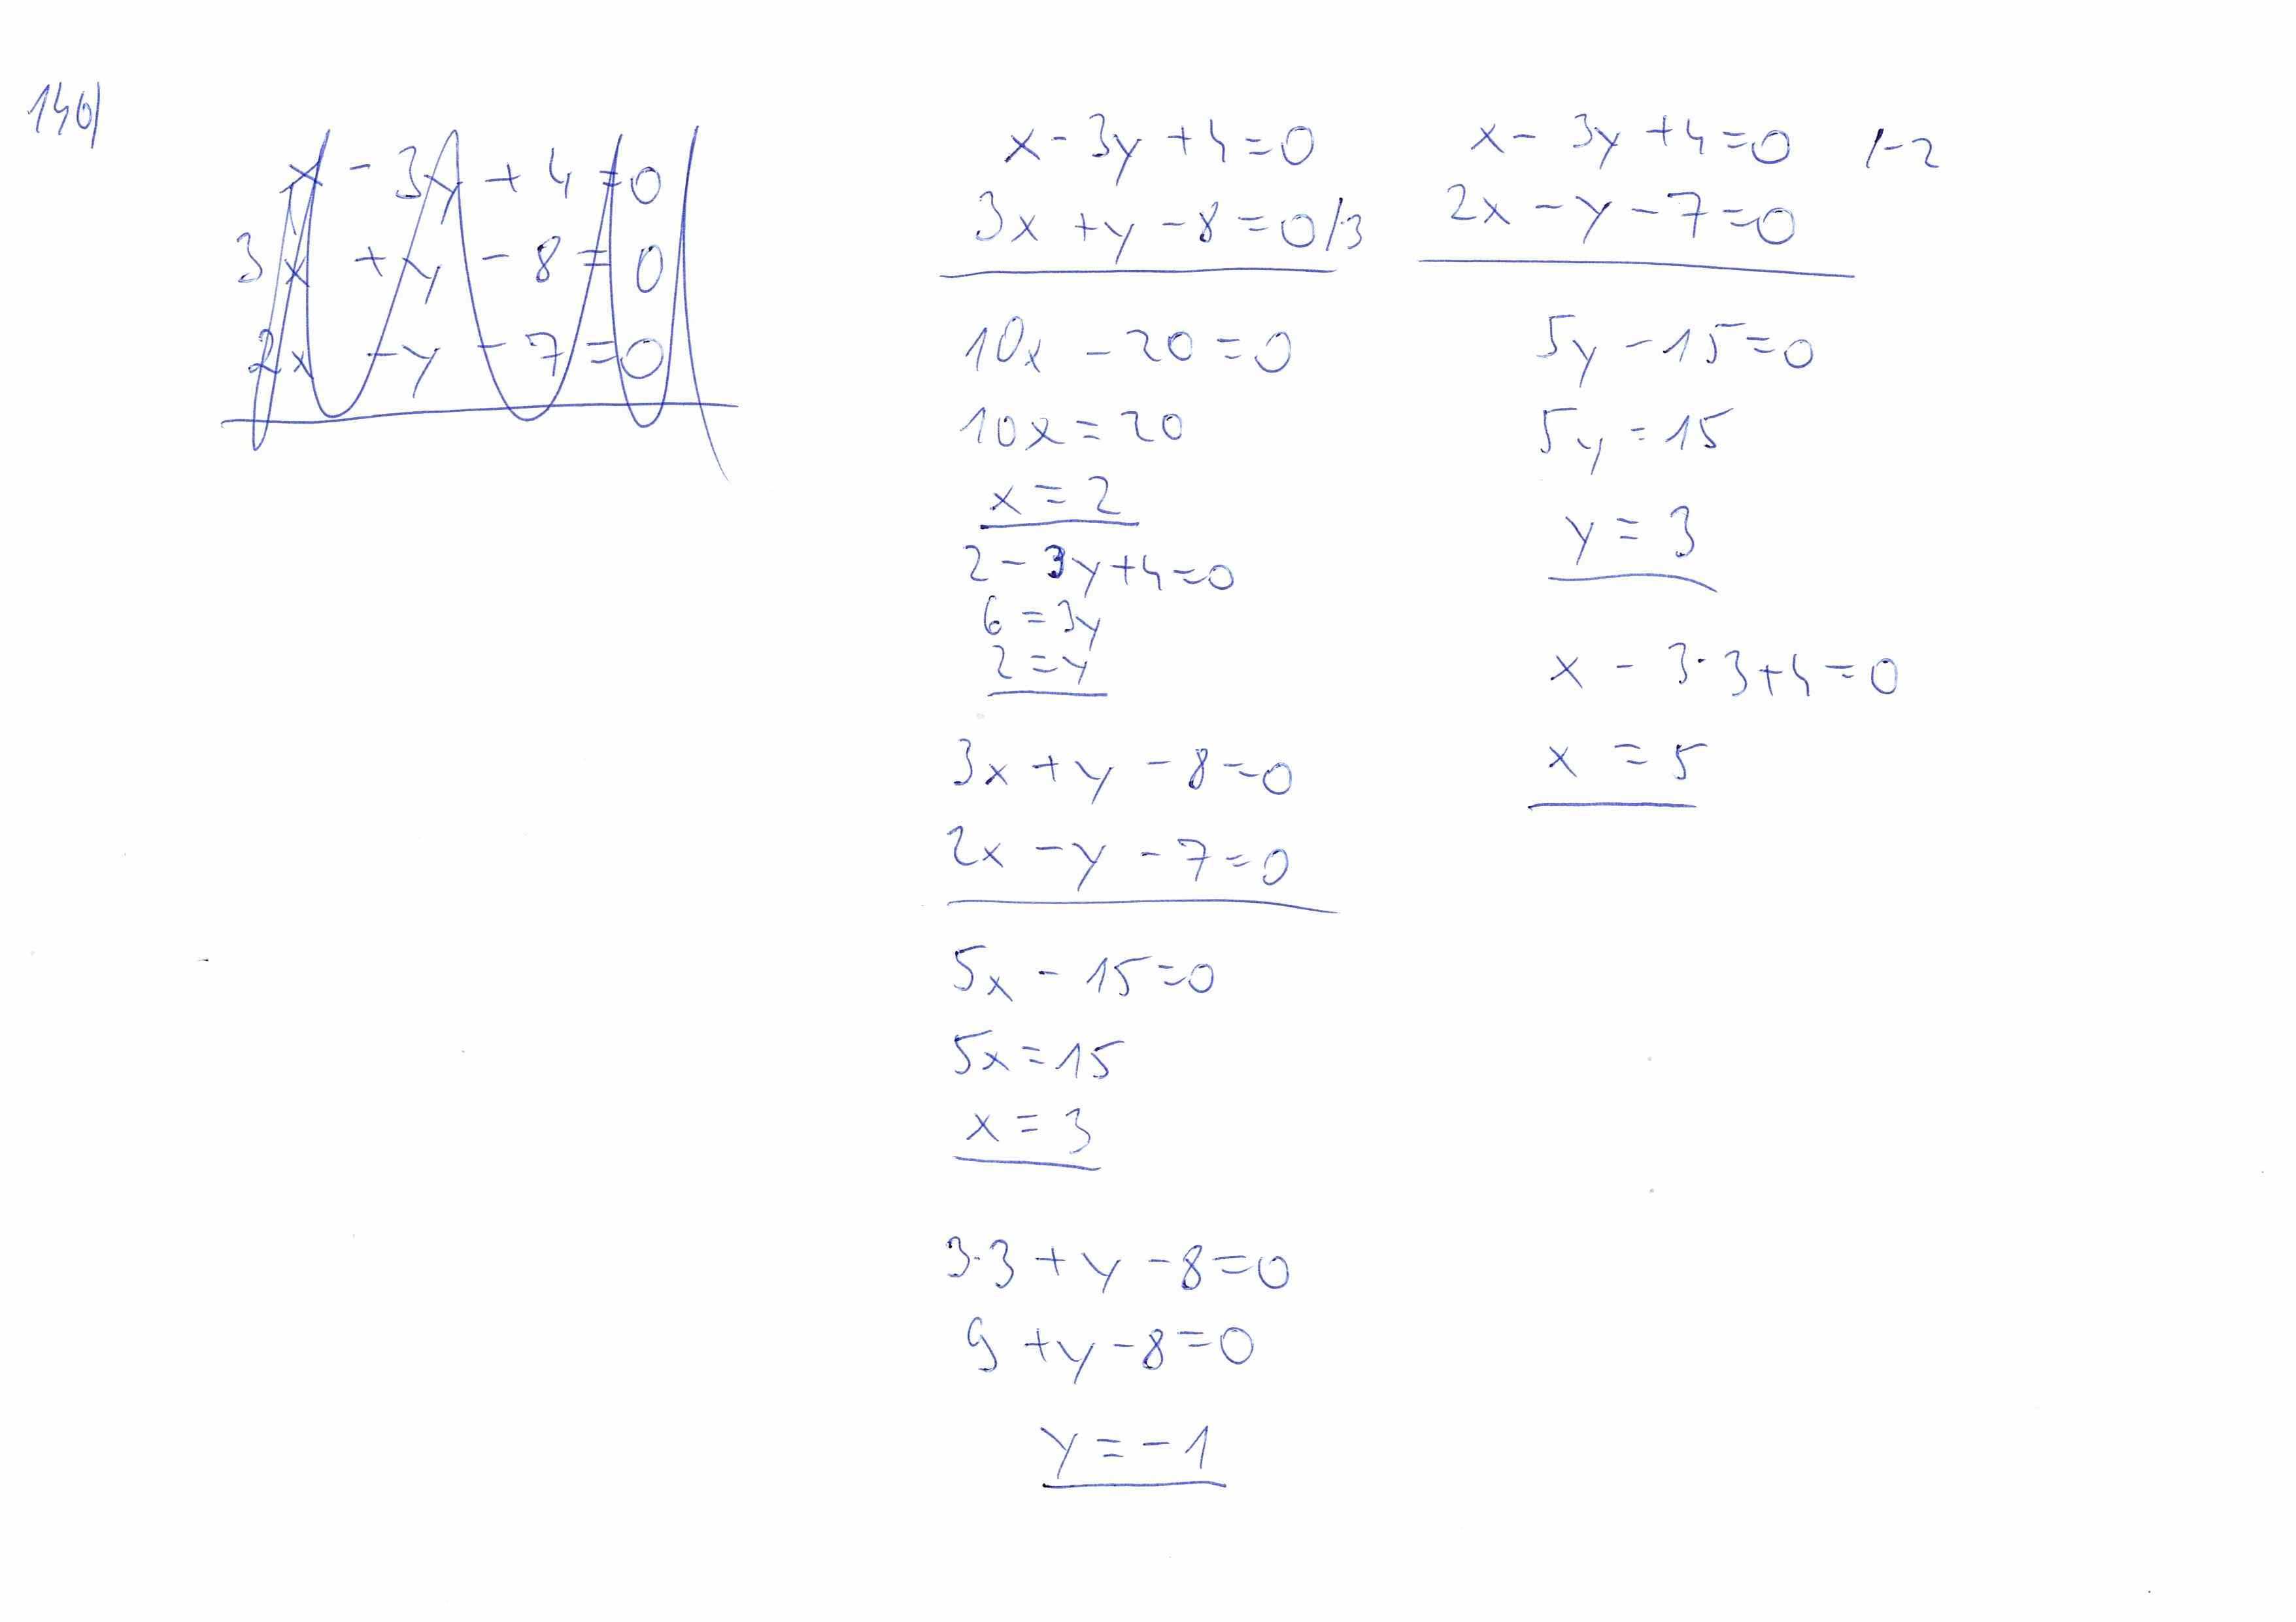 146)
x - 3y + 4 = 0
3x + y - 8 = 0
2x - y - 7 = 0
x - 3y + 4 = 0
3x + y - 8 = 0 /·3
10x - 20 = 0
10x = 20
x = 2
2 - 3y + 4 = 0
6 = 3y
2 = y
3x + y - 8 = 0
2x - y - 7 = 0
5x - 15 = 0
5x = 15
x = 3
3·3 + y - 8 = 0
9 + y - 8 = 0
y = -1
x - 3y + 4 = 0 /-2
2x - y - 7 = 0
5y - 15 = 0
5y = 15
y = 3
x - 3·3 + 4 = 0
x = 5